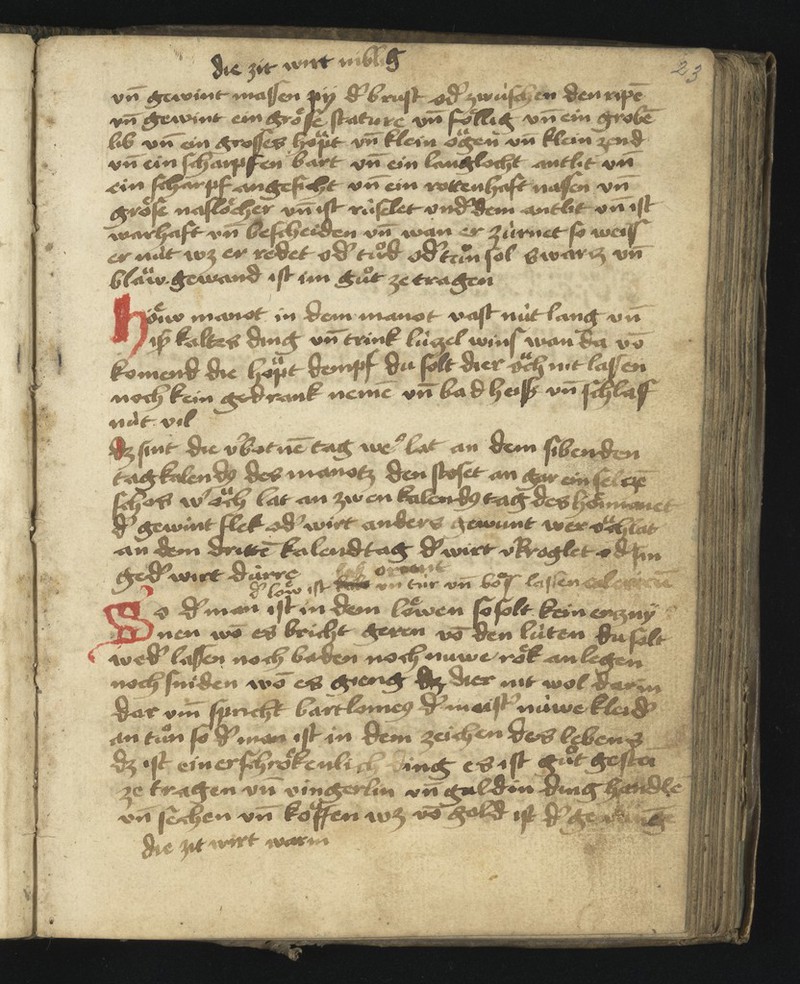 die zit wirt niblig
23
vn̄ gewint massen pij d' brust od' zwúschen den ripē
vn̄ gewint ein grosse stature vn̄ föllig vn̄ ein grobē
lib vn̄ ein grosses höpt vn̄ klein ögen vn̄ klein zend
vn̄ ein scharpfen bart vn̄ ein langlocht antlit vn̄
ein scharpf angesicht vn̄ ein rottenhaft nassen vn̄
grösse naslöcher vn̄ ist rúselet vnd' dem antlit vn̄ ist
warhaft vn̄ bescheiden vn̄ wan er zúrnet so weiss
er nút wz er redet od' tůd od' tůn sol swarz vn̄
blaw gewand ist im gůt ze tragen
höiw manot in dem manot vast nút lang vn̄
isß kaltes ding vn̄ trink lúzel wins wan da vō
komend die höpt dempf du solt dier öch nit lassen
noch kein gedrank nemē vn̄ bad heiß vn̄ schlaff
nút vil
dz sint die v'botnē tag we' lat an dem sibenden
tag kalend' des manotz den stoset an gar ein
schos w' öch lat an zwen kalend' tag des höimanet
d' gewint flek od' wirt anders gewunt wer öch lat
an dem drittē kalendtag d' wirt od' im
ged' wirt dúrre
d' löw ist orient vn̄ túr vn̄ böss lassen
So d' man ist in dem löwen so solt kein erzny
nen wō es bricht geren vō den lúten du solt
wed' lassen noch baden noch nuwe rök an legen
noch sniden wō es gieng dz dier nit wol darin
dar vm̄ spricht bartlomeus d' meist' núwe kleid'
an tůn so d' man ist in dem zeichen des lebens
dz ist ein erschrökenlich ding es ist gůt
ze tragen vn̄ vingerlin vn̄ guldin ding handlē
vn̄ sechen vn̄ köffen wz vō gold ist d'
die zit wirt warm